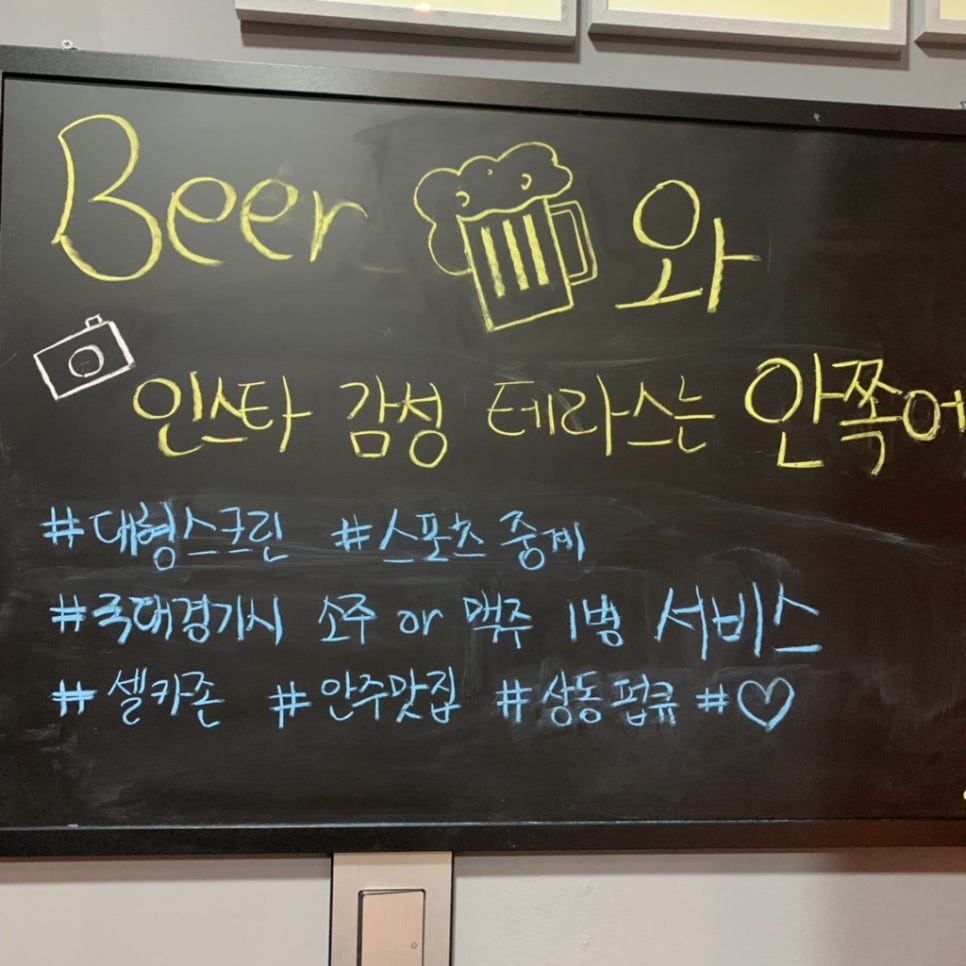 Beer 와
인스타 감성 테라스는 안쪽에
#대형스크린 #스포츠 중계
#국대경기시 소주 or 맥주 1병 서비스
#셀카존 #안주맛집 #상동펍큐 #♡